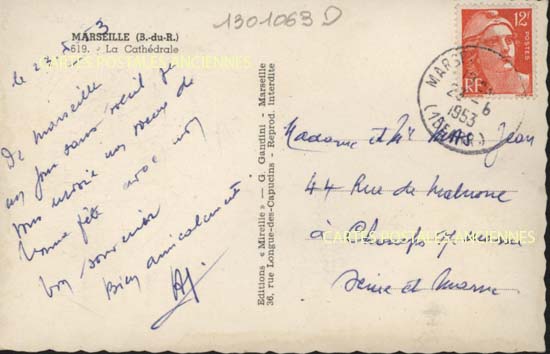 1301063 D
MARSEILLE (B.-du-R.)
619. - La Cathédrale
CARTES POSTALES ANCIENNES
De Marseille
un jour sans soleil je
vous envoie nos vœux de
bonne fête avec nos
bon souvenir
Bien amicalement
Editions « Mireille » — G. Gandini - Marseille
36, rue Longue-des-Capucins - Reprod. interdite
12F
POSTES
RF
MARSEILLE
6
1953
Madame et Mr Jean
44 Rue de
à Champs s/ Marne
CARTES POSTALES ANCIENNES
Seine et Marne